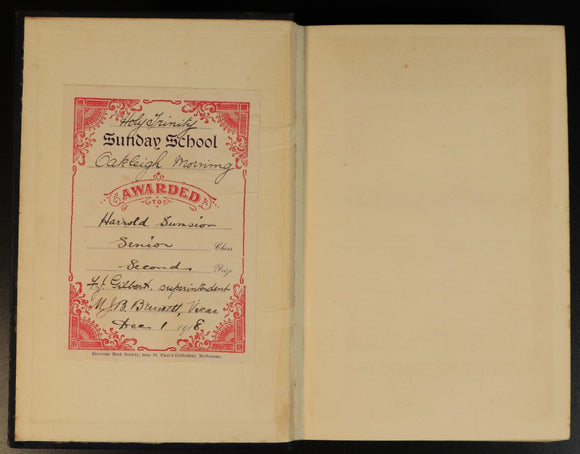 Holy Trinity
Sunday School
Oakleigh Morning
AWARDED
TO
Harrold Sumsion
Senior Class
Second Prize
F. J. Gilbert, superintendent
M. J. B. Bennett, Vicar
Dec 1 1918
Diocesan Book Society, near St. Paul's Cathedral, Melbourne.